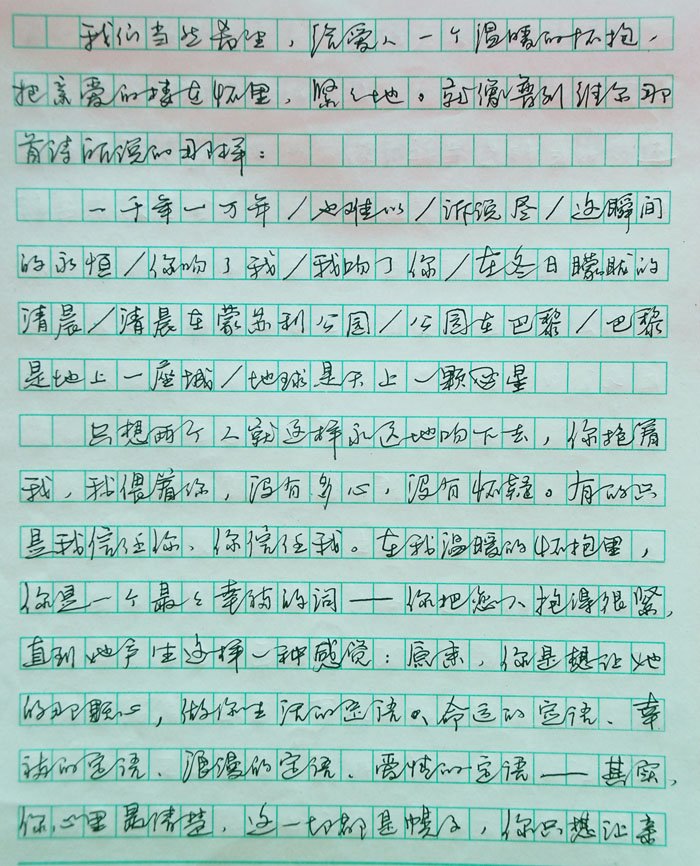 我们当些春里，给爱人一个温暖的怀抱，
把亲爱的揍在怀里，紧々地。就像普列维尔那
首诗所说的那样：
一千年一万年/也难以/诉说尽/这瞬间
的永恒/你吻了我/我吻了你/在冬日朦胧的
清晨/清晨在蒙苏利公园/公园在巴黎/巴黎
是地上一座城/地球是天上一颗星
只想两个人就这样永远地吻下去，你抱着
我，我偎着你，没有多心，没有怀疑。有的只
是我信任你、你信任我。在我温暖的怀抱里，
你是一个最々幸福的词——你把她抱得很紧，
直到她产生这样一种感觉：原来，你是想让她
的那颗心，做你生活的定语、命运的定语、幸
福的定语、浪漫的定语、爱情的定语——其实，
你心里最清楚，这一切都是幌子，你只想让亲